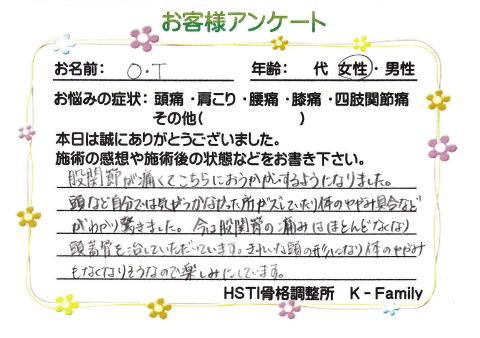 お客様アンケート
お名前： O・T 年齢： 代 女性・男性
お悩みの症状：頭痛・肩こり・腰痛・膝痛・四肢関節痛
その他( )
本日は誠にありがとうございました。
施術の感想や施術後の状態などをお書き下さい。
股関節が痛くてこちらにおうかがいするようになりました。
頭など自分では気がつかなかった所がズレていたり体のやゆみ具合など
がわかり驚きました。今は股関節の痛みはほとんどなくなり
頭蓋骨を治していただいています。きれいな頭の形になり体のやゆみ
もなくなりそうなので楽しみにしています。
HSTI骨格調整所 K－Family